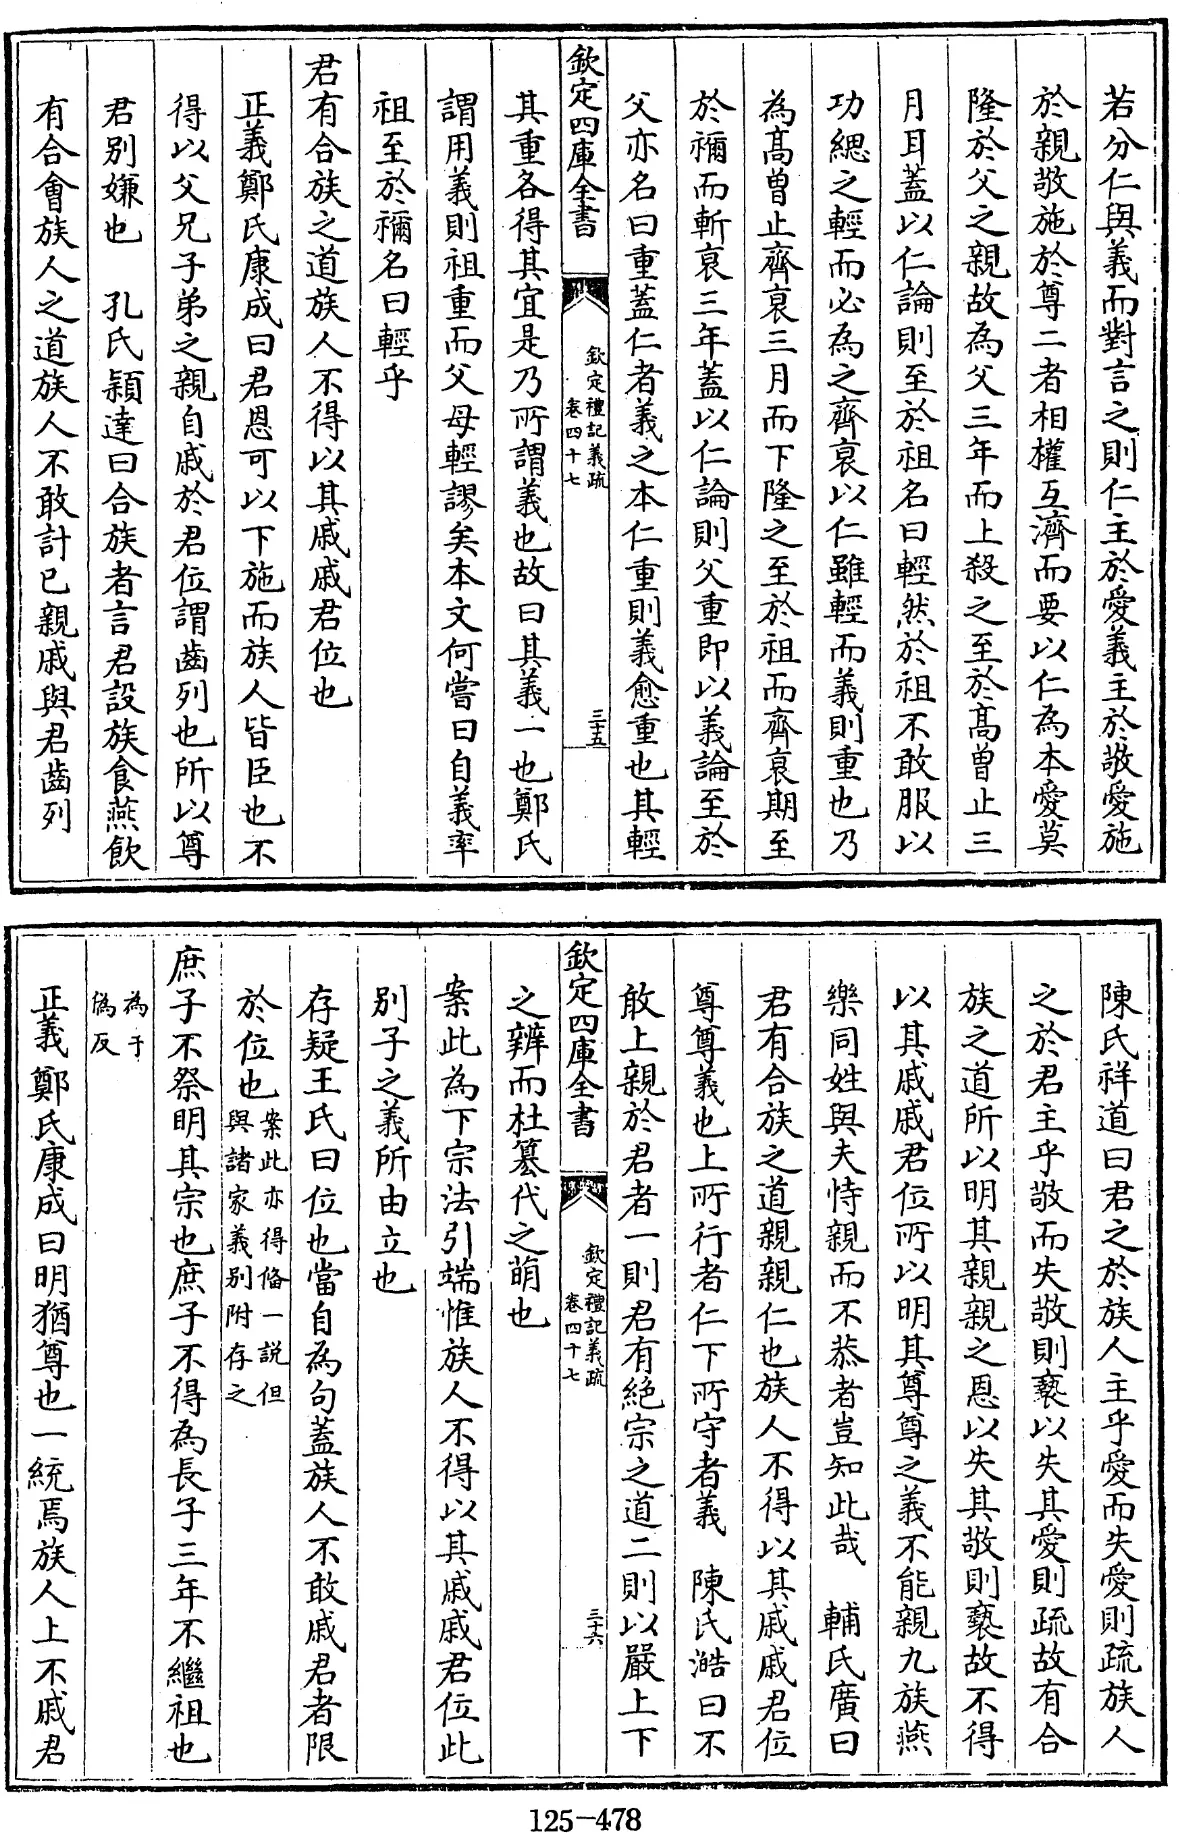 若分仁與義而對言之則仁主於愛義主於敬愛施
於親敬施於尊二者相權互濟而要以仁為本愛莫
隆於父之親故為父三年而上殺之至於髙曾止三
月耳蓋以仁論則至於祖名曰輕然於祖不敢服以
功緦之輕而必為之齊衰以仁雖輕而義則重也乃
為髙曾止齊衰三月而下隆之至於祖而齊衰期至
於禰而斬衰三年蓋以仁論則父重即以義論至於
父亦名曰重蓋仁者義之本仁重則義愈重也其輕
欽定四庫全書
欽定禮記義疏
卷四十七
三十五
其重各得其宜是乃所謂義也故曰其義一也鄭氏
謂用義則祖重而父母輕謬矣本文何嘗曰自義率
祖至於禰名曰輕乎
君有合族之道族人不得以其戚戚君位也
正義鄭氏康成曰君恩可以下施而族人皆臣也不
得以父兄子弟之親自戚於君位謂齒列也所以尊
君別嫌也 孔氏穎達曰合族者言君設族食燕飲
有合會族人之道族人不敢計己親戚與君齒列
陳氏祥道曰君之於族人主乎愛而失愛則疏族人
之於君主乎敬而失敬則褻以失其愛則疏故有合
族之道所以明其親親之恩以失其敬則褻故不得
以其戚戚君位所以明其尊尊之義不能親九族燕
樂同姓與夫恃親而不恭者豈知此哉 輔氏廣曰
君有合族之道親親仁也族人不得以其戚戚君位
尊尊義也上所行者仁下所守者義 陳氏澔曰不
敢上親於君者一則君有絕宗之道二則以嚴上下
欽定四庫全書
欽定禮記義疏
卷四十七
三十六
之辨而杜簒代之萌也
案此為下宗法引端惟族人不得以其戚戚君位此
別子之義所由立也
存疑王氏曰位也當自為句蓋族人不敢戚君者限
於位也案此亦得偹一説但
與諸家義別附存之
庶子不祭明其宗也庶子不得為長子三年不繼祖也
為于
偽反
正義鄭氏康成曰明猶尊也一統焉族人上不戚君
125-478